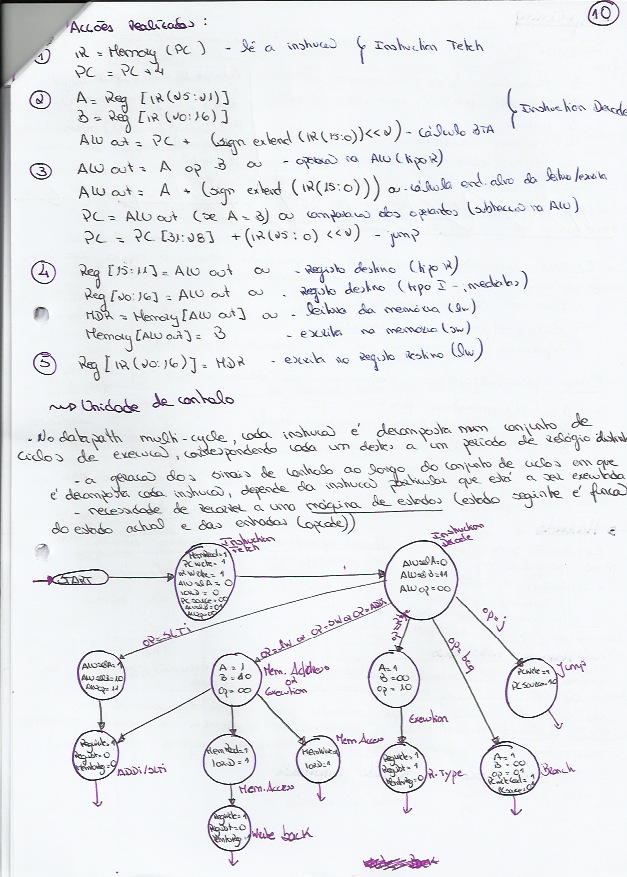 10
Acções Realizadas:
① IR = Memory (PC) - lê a instrução } Instruction Fetch
PC = PC + 4
② A = Reg [IR(25:21)]
B = Reg [IR(20:16)] } Instruction Decode
ALU out = PC + (sign extend (IR(15:0))<<2) - cálculo BTA
③ ALU out = A op B ou - operação na ALU (tipo R)
ALU out = A + (sign extend (IR(15:0))) ou - cálcula end. alvo da leitura/escrita
PC = ALU out (se A=B) ou comparacao dos operandos (subtracção na ALU)
PC = PC [31:28] + (IR(25:0) <<2) - jump
④ Reg [15:11] = ALU out ou - Registo destino (tipo R)
Reg [20:16] = ALU out ou - Registo destino (tipo I - imediatos)
MDR = Memory [ALU out] ou - leitura da memória (lw)
Memory [ALU out] = B - escrita na memória (sw)
⑤ Reg [IR(20:16)] = MDR - escrita no Registo Destino (lw)
~~> Unidade de controlo
- No datapath multi-cycle, cada instrução é decomposta num conjunto de
ciclos de execução, correspondendo cada um destes a um periodo de relógio distinto
- a geração dos sinais de controlo ao longo do conjunto de ciclos em que
é decomposta cada instrução, depende da instrução particular que está a ser executada
- necessidade de recorrer a uma máquina de estados (estado seguinte é função
do estado actual e das entradas (opcode))
START
Instruction
Fetch
MemRead=1
PCWrite=1
IRWrite=1
ALUselA=0
IorD=0
PCsource=00
ALUselB=01
ALUop=00
Instruction
Decode
ALUselA=0
ALUselB=11
ALUop=00
OP=SLTi
OP=LW or OP=SW or OP=ADDi
OP=R-Type
OP=beq
OP=j
ALUselA=1
ALUselB=10
ALUop=11
A=1
B=10
OP=00
Mem. Address
or
Execution
A=1
B=00
OP=10
Execution
PCWrite=1
PCSource=10
Jump
RegWrite=1
RegDst=0
MemtoReg=0
ADDi/SLTi
MemRead=1
IorD=1
Mem. Access
MemWrite=1
IorD=1
Mem Access
RegWrite=1
RegDst=1
MemtoReg=0
R-Type
A=1
B=00
OP=01
PCWriteCond=1
PCSource=01
Branch
RegWrite=1
RegDst=0
MemtoReg=1
Write back